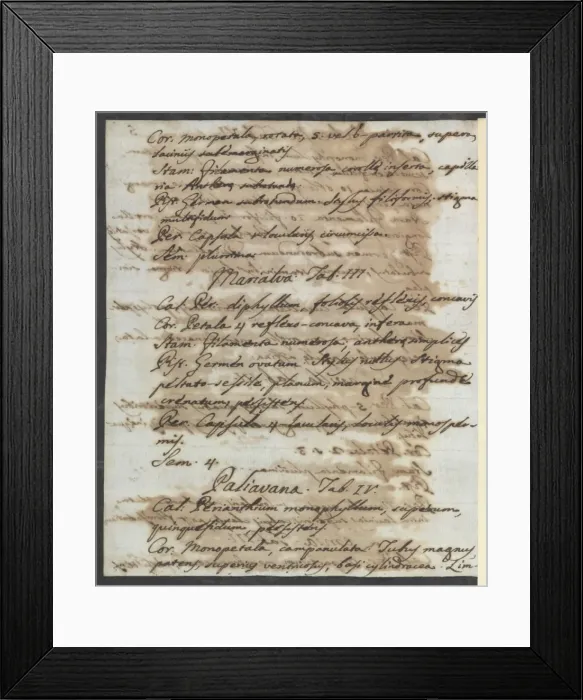 Cor. monopetala, rotata, 5. vel 6-partita, supera
laciniis subemarginatis
Stam: Filamenta numerosa, corollæ inserta, capilla
ria. Antheræ subrotundæ
Pist. Germen subrotundum. Stylus filiformis. Stigma
multifidum
Per. Capsula locularis, circumscissa.
Sem. plurima.
Marialva. Tab. III.
Cal. Per. diphyllum, foliolis reflexis, concavis
Cor. Petala 4 reflexo-concava, infera
Stam. Filamenta numerosa, antheræ simplices
Pist. Germen ovatum. Stylus nullus. Stigma
peltato-sessile, planum, margine profunde
crenatum, persistens
Per. Capsula 4-locularis, loculis monosper-
mis.
Sem. 4.
Paliavana. Tab. IV.
Cal. Perianthium monophyllum, superum,
quinquefidum, persistens
Cor. Monopetala, campanulata. Tubus magnus
patens, superius ventricosus, basi cylindracea. Lim-